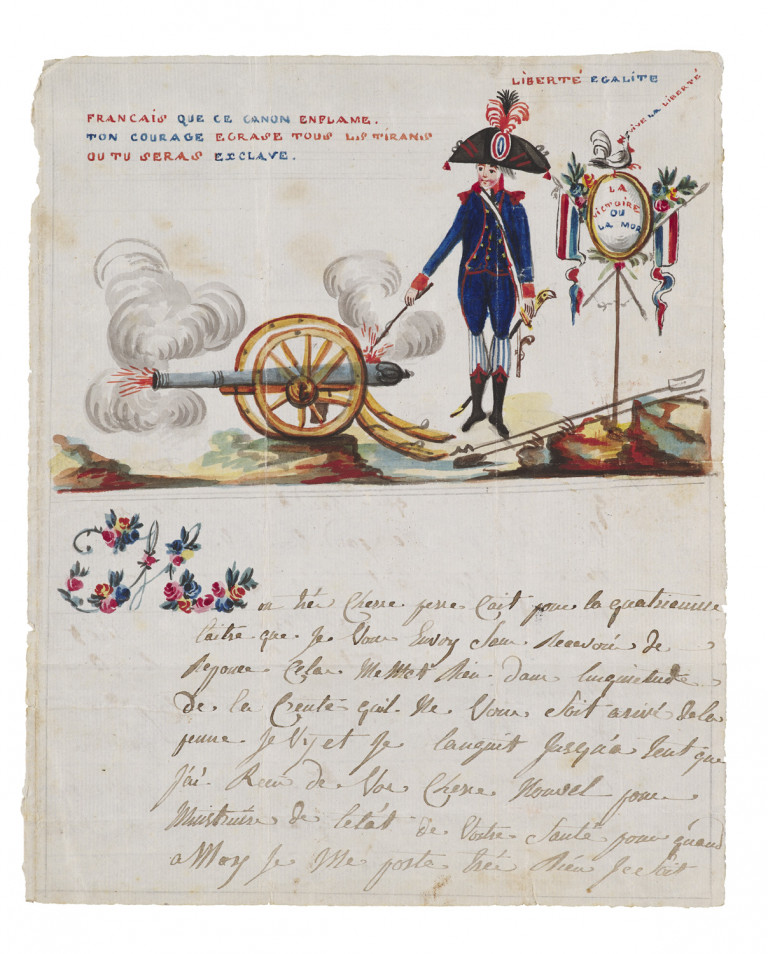 LIBERTÉ EGALITE
VIVE LA LIBERTÉ
FRANCAIS QUE CE CANON ENFLAME.
TON COURAGE ECRASE TOUS LES TIRANS
OU TU SERAS EXCLAVE.
LA
VICTOIRE
OU
LA MOR
M
on tré Cherre perre Cait pour la quatrieumme
laitre que Je Vous Envoy Sans Recevoir de
Reponce Celas Me Met Bien dans linquietude
de la Crente quil Ne Vous Soit arivé de la
penne Je Vy et Je languit Jusqua tent que
J'ai Reçu de Vos Cherre Nouvel pour
Minstruire de letat de Vostre Santé pour quand
a Moy Je Me porte tré Bien Je